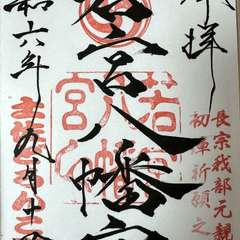 奉拝
長宗我部元親
初陣祈願之
若宮八幡宮
和六年九月十